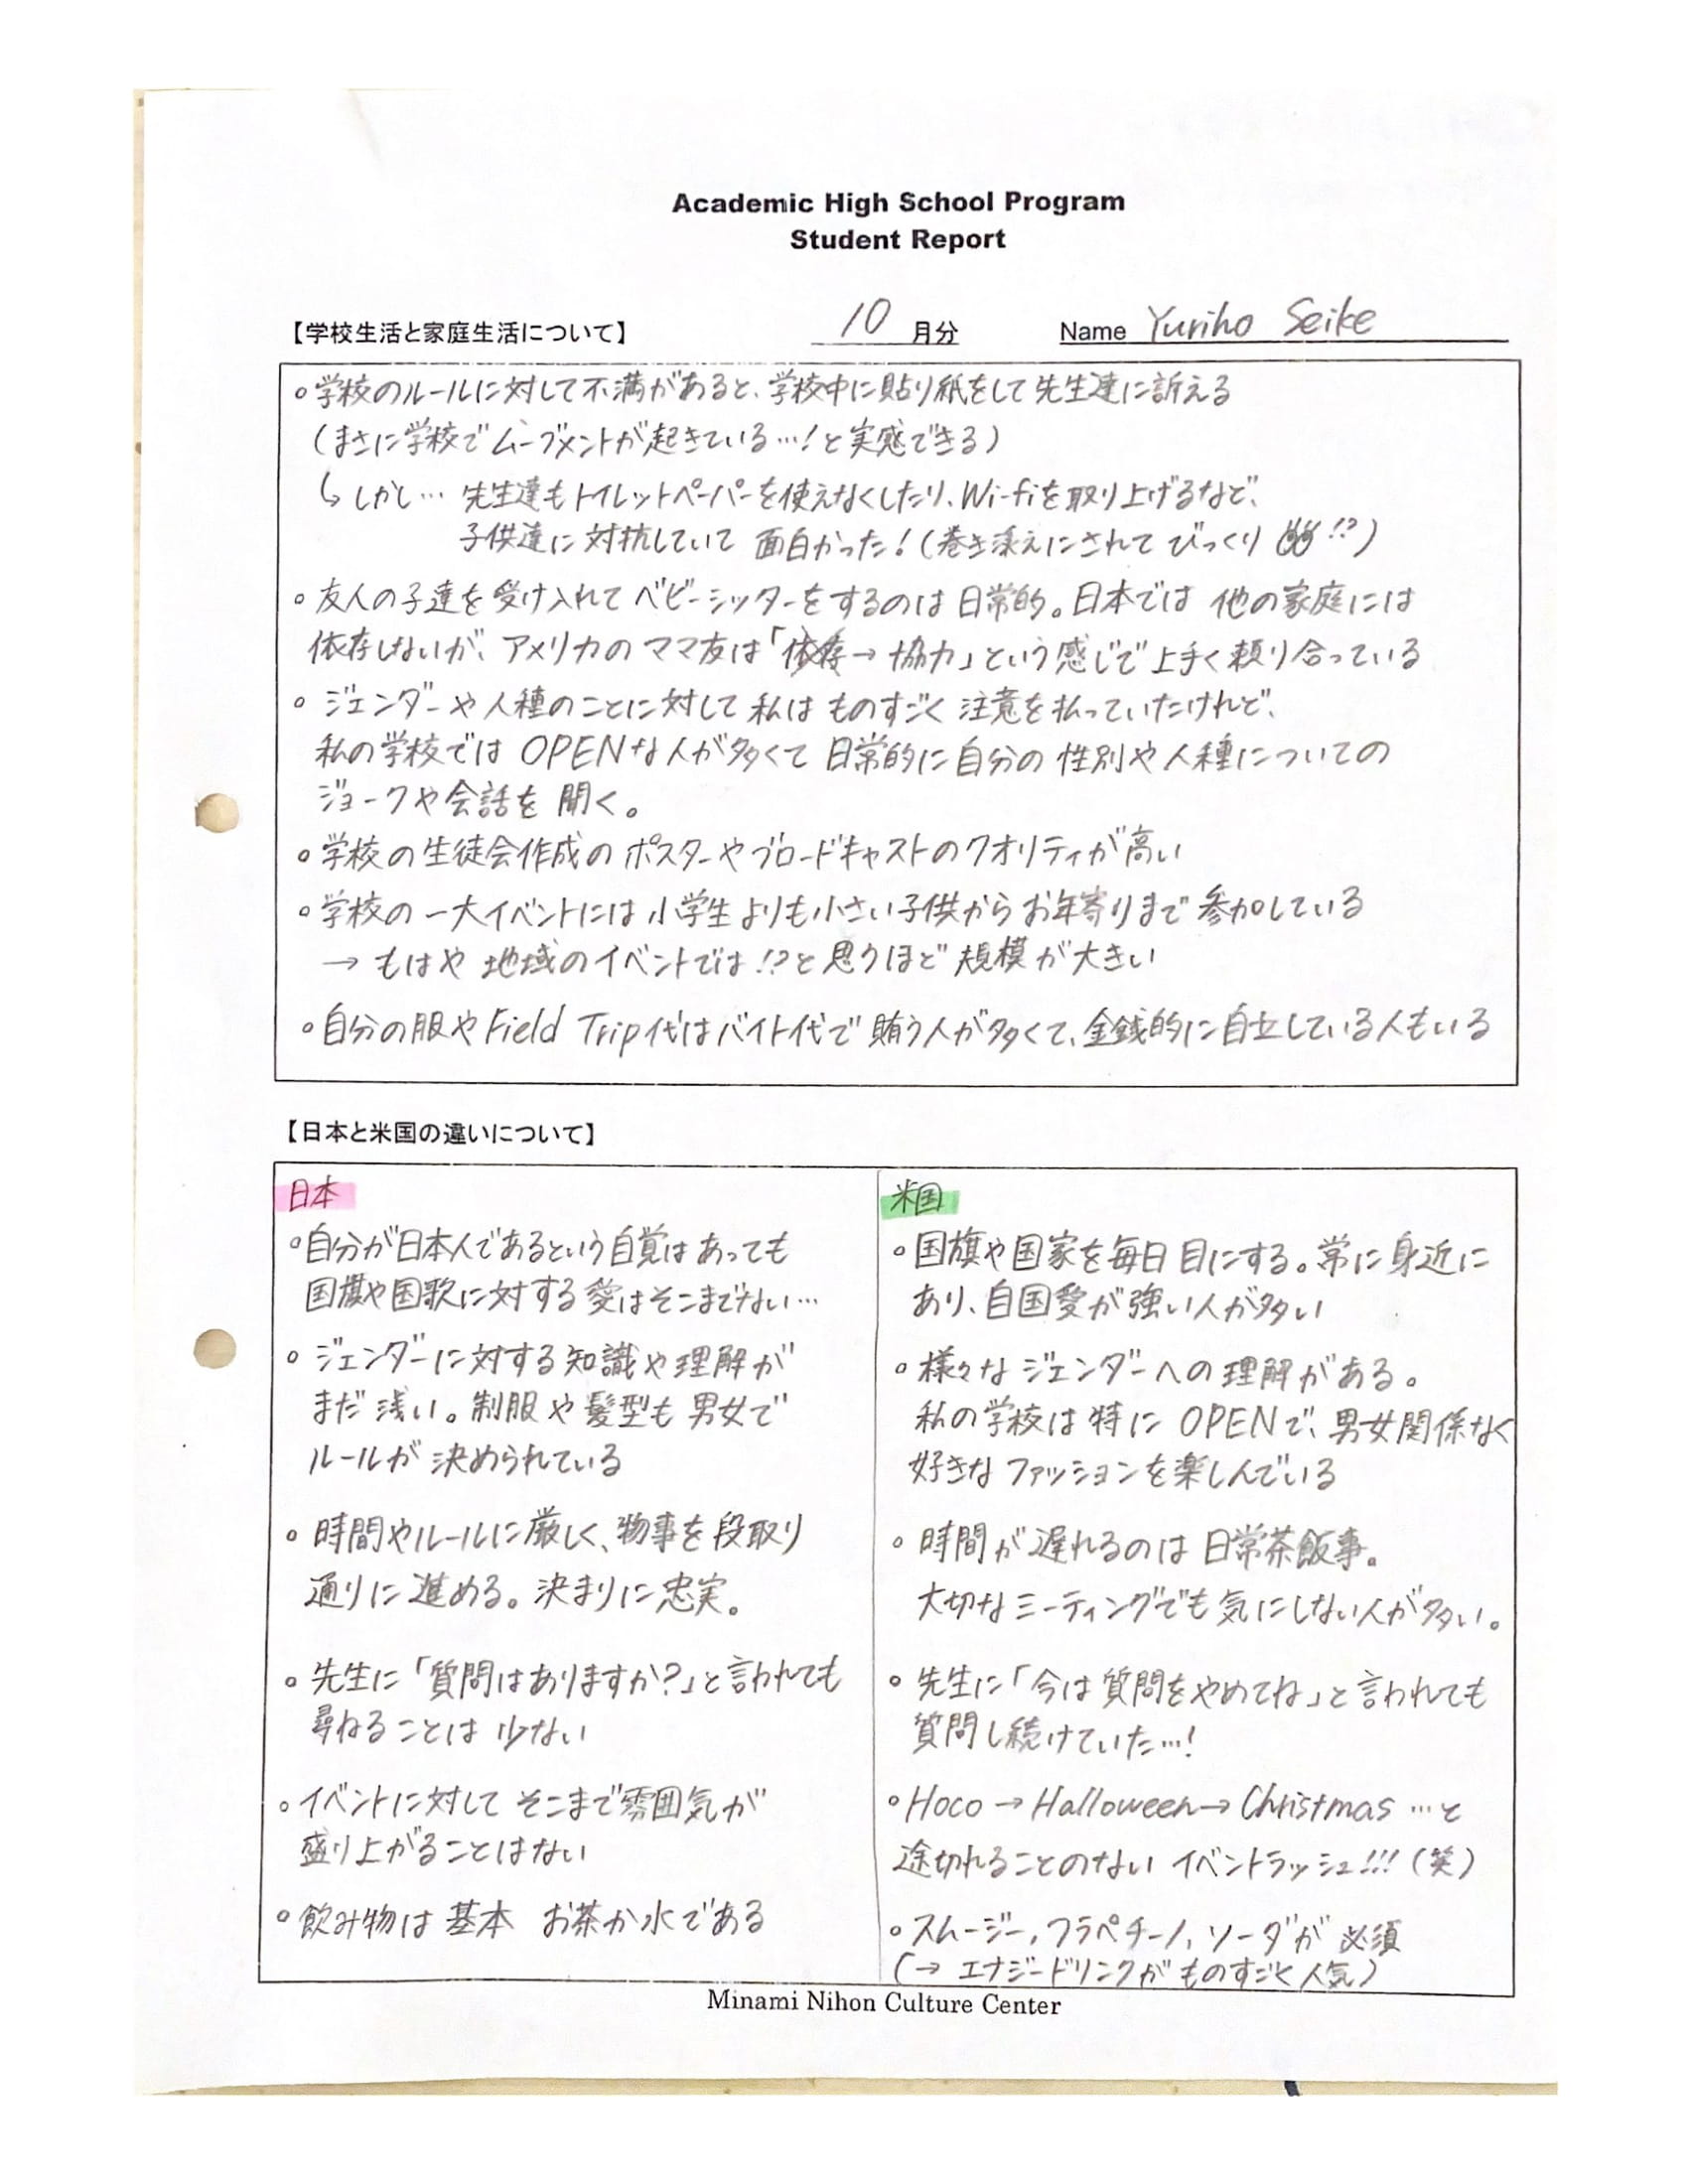 Academic High School Program
Student Report
【学校生活と家庭生活について】
10 月分
Name Yuriho Seike
○学校のルールに対して不満があると、学校中に貼り紙をして先生達に訴える
(まさに学校でムーブメントが起きている…!と実感できる)
↳しかし… 先生達もトイレットペーパーを使えなくしたり、Wi-fiを取り上げるなど、
子供達に対抗していて 面白かった!(巻き添えにされて びっくり !?)
○友人の子達を受け入れてベビーシッターをするのは日常的。日本では 他の家庭には
依存しないが、アメリカの ママ友は「依存→協力」という感じで上手く頼り合っている
○ジェンダーや人種のことに対して私はものすごく 注意を払っていたけれど、
私の学校では OPENな人が多くて 日常的に自分の 性別や人種についての
ジョークや会話を 聞く。
○学校の生徒会作成のポスターやブロードキャストのクオリティが高い
○学校の一大イベントには小学生よりも小さい子供からお年寄りまで参加している
→ もはや 地域のイベントでは!?と思うほど規模が大きい
○自分の服やField Trip代はバイト代で賄う人が多くて、金銭的に自立している人もいる
【日本と米国の違いについて】
日本
○自分が日本人であるという自覚はあっても
国旗や国歌に対する愛はそこまでない…
○ジェンダーに対する知識や理解が
まだ浅い。制服や髪型も男女で
ルールが決められている
○時間やルールに厳しく、物事を段取り
通りに進める。決まりに忠実。
○先生に「質問はありますか?」と言われても
尋ねることは少ない
○イベントに対して そこまで雰囲気が
盛り上がることはない
○飲み物は基本 お茶か水である
米国
○国旗や国家を毎日目にする。常に身近に
あり、自国愛が強い人が多い
○様々なジェンダーへの理解がある。
私の学校は特に OPENで、男女関係なく
好きなファッションを楽しんでいる
○時間が遅れるのは日常茶飯事。
大切なミーティングでも気にしない人が多い。
○先生に「今は質問をやめてね」と言われても
質問し続けていた…!
○Hoco→Halloween→Christmas …と
途切れることのない イベントラッシュ!!!(笑)
○スムージー,フラペチーノ,ソーダが必須
(→ エナジードリンクがものすごく人気)
Minami Nihon Culture Center